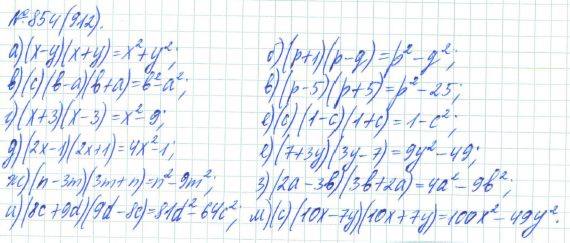 №854(912).
а) (x-y)(x+y)=x²+y²;
б) (p+1)(p-g)=p²-g²;
в) (с) (b-a)(b+a)=b²-a²;
в) (p-5)(p+5)=p²-25;
г) (x+3)(x-3)=x²-9;
е) (с) (1-c)(1+c)=1-c²;
д) (2x-1)(2x+1)=4x²-1;
е) (7+3y)(3y-7)=9y²-49;
ж) (n-3m)(3m+n)=n²-9m²;
з) (2a-3b)(3b+2a)=4a²-9b²;
и) (8c+9d)(9d-8c)=81d²-64c²;
м) (с) (10x-7y)(10x+7y)=100x²-49y².